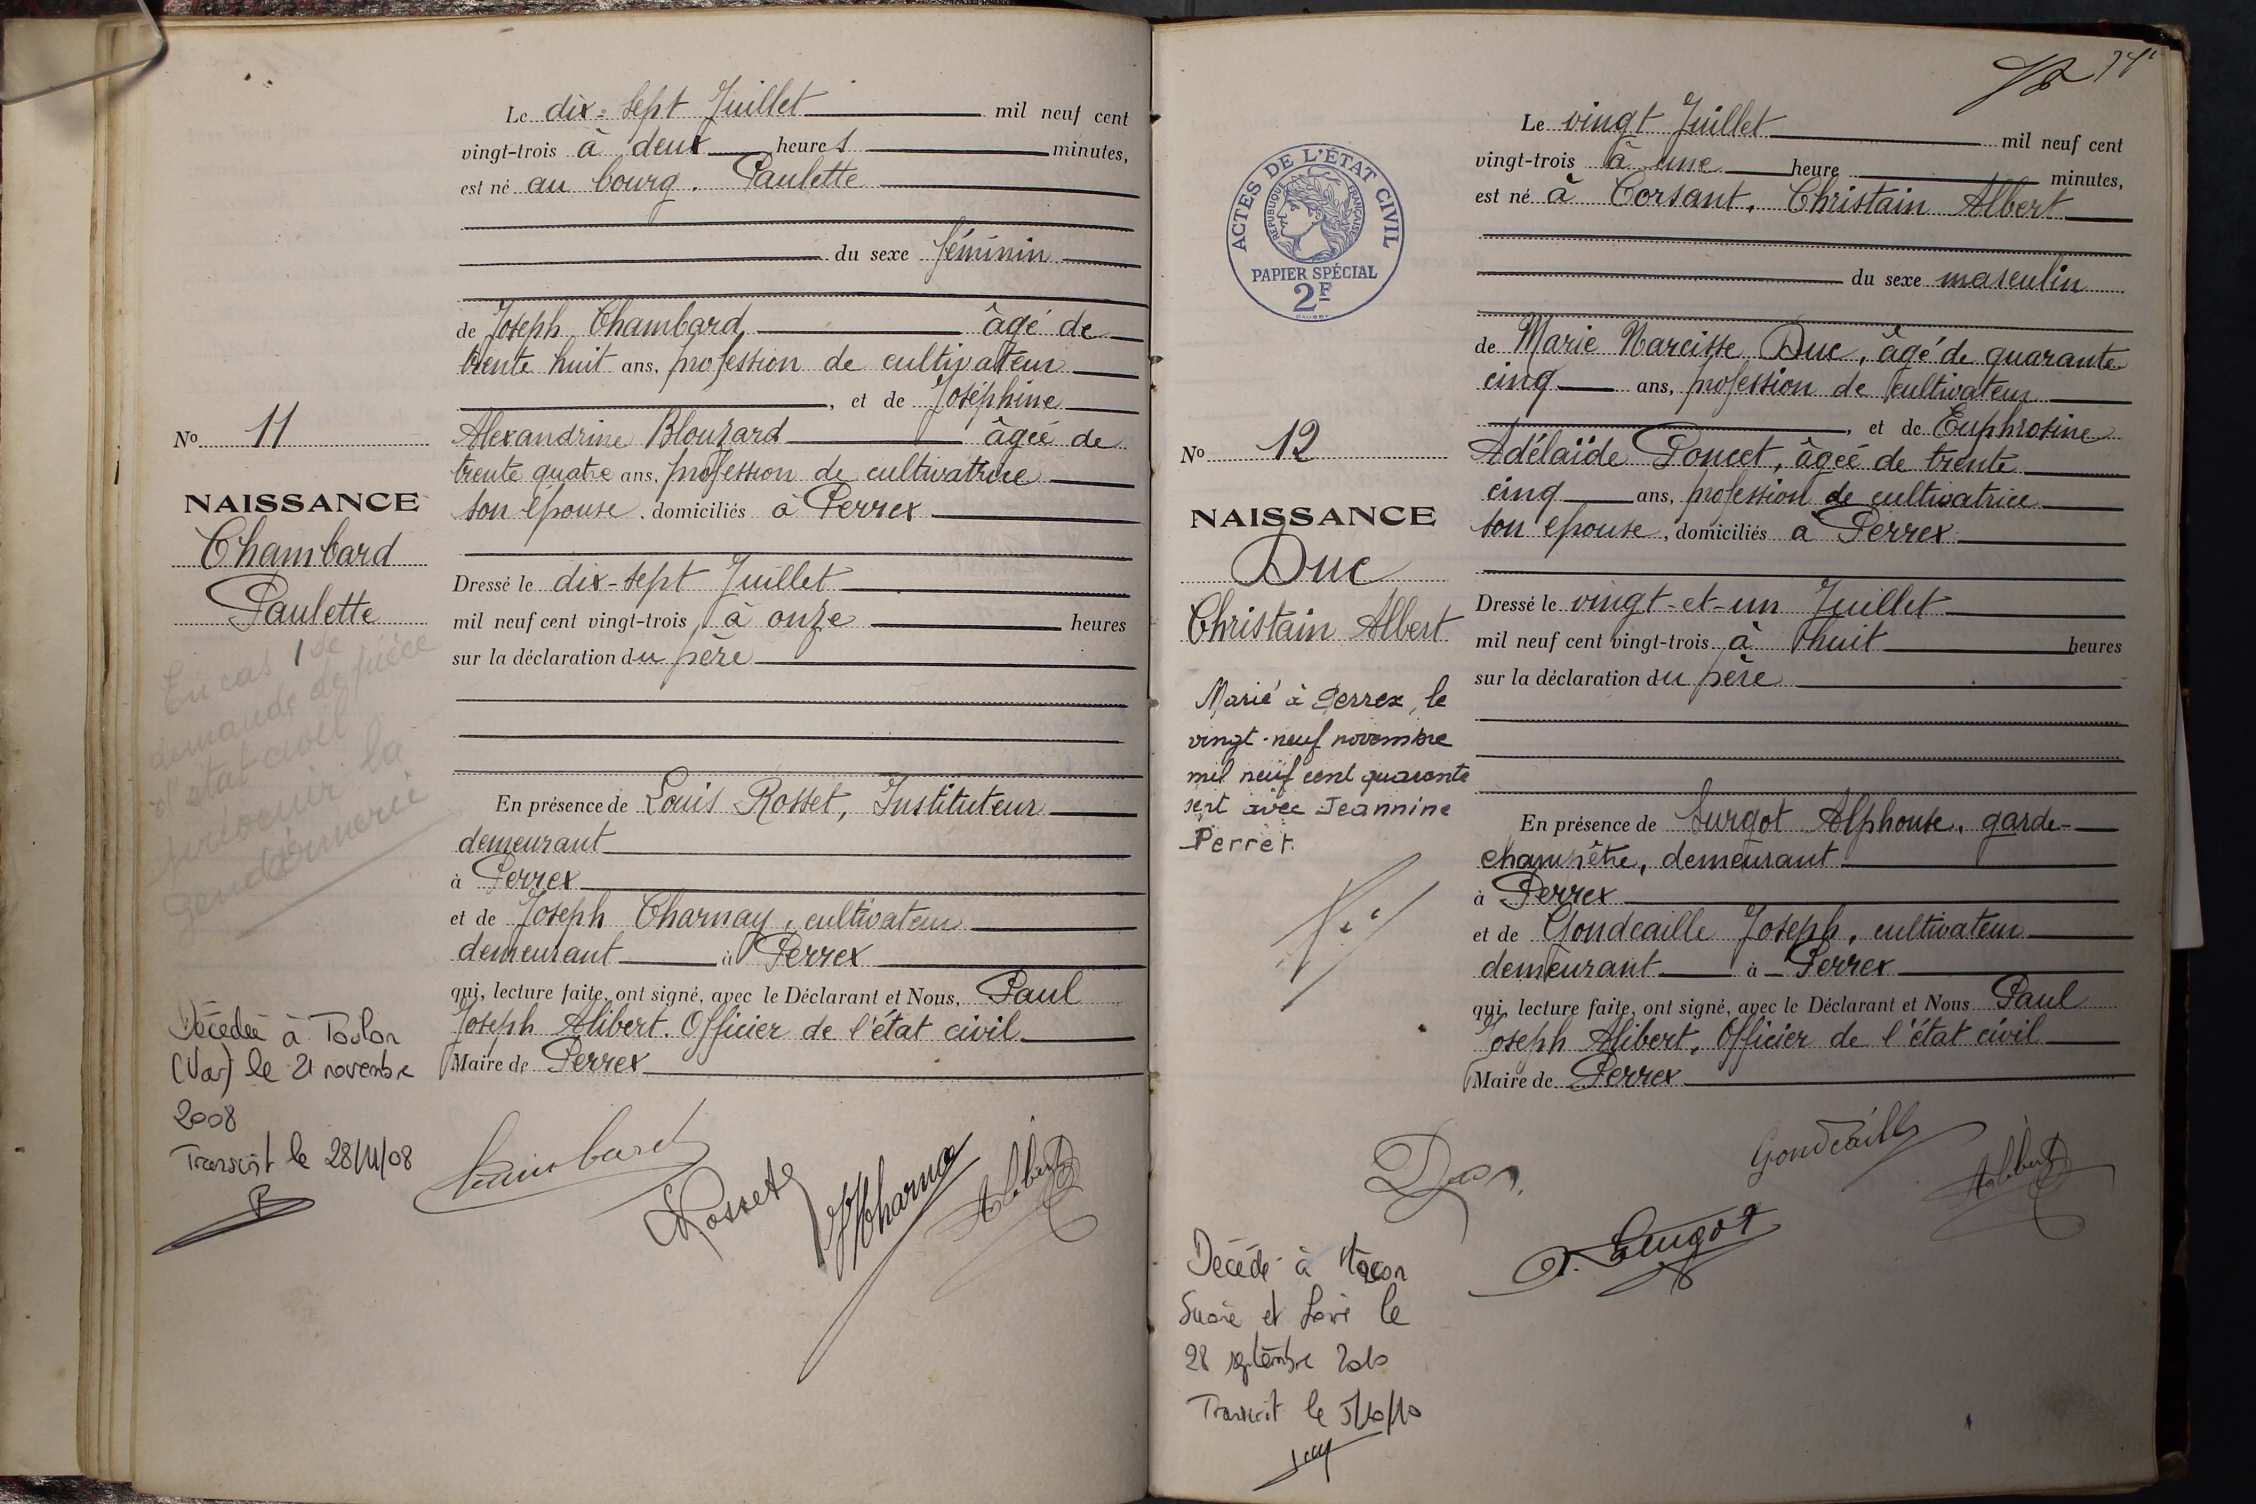 Le dix-sept Juillet mil neuf cent
vingt-trois à deux heures minutes,
est né au bourg. Paulette
du sexe féminin
de Joseph Chambard âgé de
trente huit ans, profession de cultivateur
, et de Joséphine
Alexandrine Blouzard âgée de
trente quatre ans, profession de cultivatrice
son épouse, domiciliés à Perrex
Dressé le dix-sept Juillet
mil neuf cent vingt-trois à onze heures
sur la déclaration du père
En présence de Louis Rosset, Instituteur
demeurant
à Perrex
et de Joseph Charnay, cultivateur
demeurant à Perrex
qui, lecture faite, ont signé, avec le Déclarant et Nous, Paul
Joseph Alibert. Officier de l'état civil
Maire de Perrex
Chambard
Rosset
JCharnay
Alibert
No 11
NAISSANCE
Chambard
Paulette
En cas de
demande de pièce
d'état civil
prévenir la
Gendarmerie
Décédée à Toulon
(Var) le 21 novembre
2008
Transcrit le 28/11/08
74
ACTES DE L'ÉTAT CIVIL
RÉPUBLIQUE FRANÇAISE
PAPIER SPÉCIAL
2F
Le vingt Juillet mil neuf cent
vingt-trois à une heure minutes,
est né à Corsant. Christain Albert
du sexe masculin
de Marie Narcisse Duc, âgé de quarante
cinq ans, profession de cultivateur
, et de Euphrosine
Adélaïde Poncet, âgée de trente
cinq ans, profession de cultivatrice
son épouse, domiciliés à Perrex
Dressé le vingt-et-un Juillet
mil neuf cent vingt-trois à huit heures
sur la déclaration du père
En présence de Surgot Alphonse, garde-
champêtre, demeurant
à Perrex
et de Gondcaille Joseph, cultivateur
demeurant à Perrex
qui, lecture faite, ont signé, avec le Déclarant et Nous Paul
Joseph Alibert, Officier de l'état civil
Maire de Perrex
Duc
Gondcaille
Alibert
Surgot
No 12
NAISSANCE
Duc
Christain Albert
Marié à Perrex, le
vingt-neuf novembre
mil neuf cent quarante
sept avec Jeannine
Perret.
Décédé à Mâcon
Saône et Loire le
28 septembre 2010
Transcrit le 5/10/10